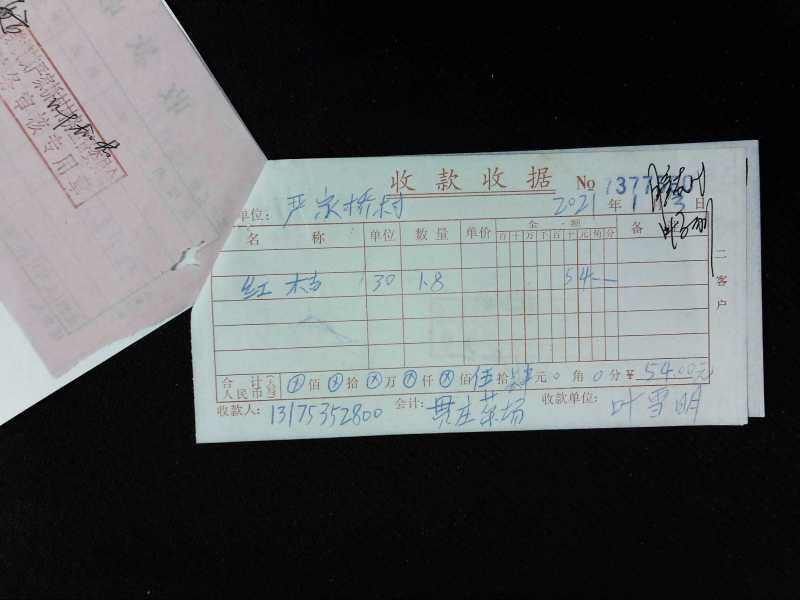 审核专用章
收款收据 No 1377
单位：严家桥村 2021年1月3日
名称 单位 数量 单价 金额 备
百十万千百十元角分
红 30 1.8 54—
二客户
合计人民币(大写) ⊗佰⊗拾⊗万⊗仟⊗佰伍拾肆元0角0分¥54.00元
收款人：13175352800 会计：贯庄菜场 收款单位：叶雪明